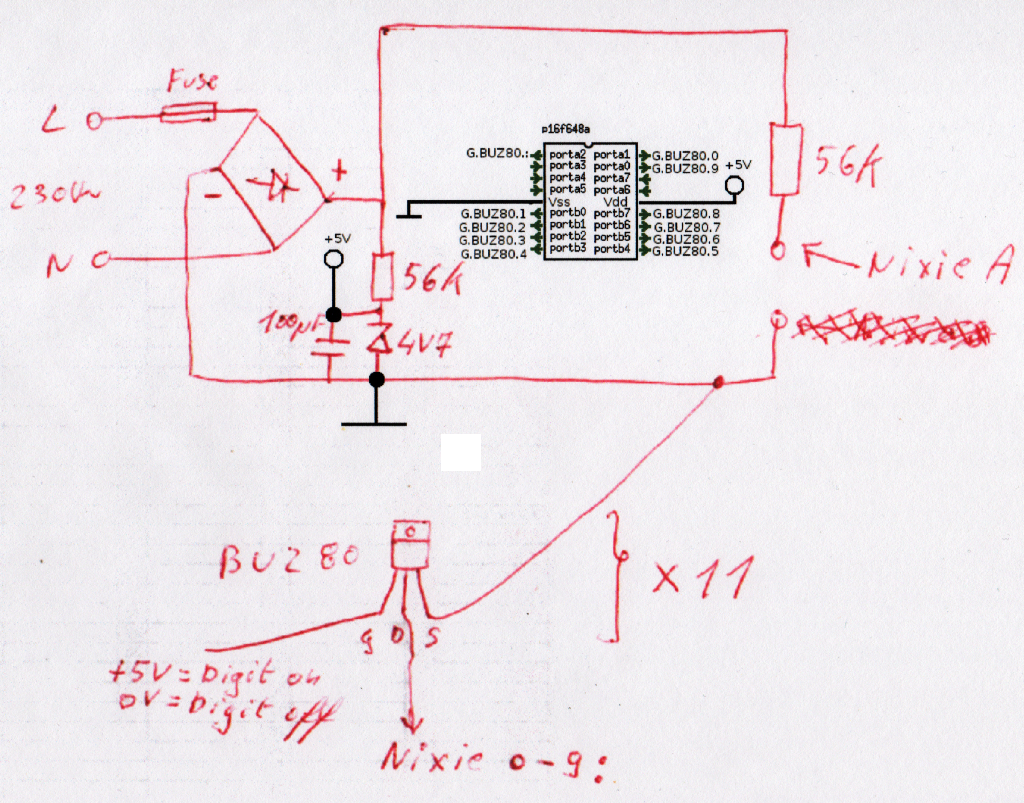 Fuse
L
230V~
N
-
+
+5V
100µF
56k
4V7
p16f648a
G.BUZ80.:
porta2 porta1
G.BUZ80.0
porta3 porta0
G.BUZ80.9
porta4 porta7
porta5 porta6
Vss Vdd
+5V
G.BUZ80.1
portb0 portb7
G.BUZ80.8
G.BUZ80.2
portb1 portb6
G.BUZ80.7
G.BUZ80.3
portb2 portb5
G.BUZ80.6
G.BUZ80.4
portb3 portb4
G.BUZ80.5
56k
Nixie A
BUZ80
g D S
x11
+5V=Digit on
0V=Digit off
Nixie 0-9: